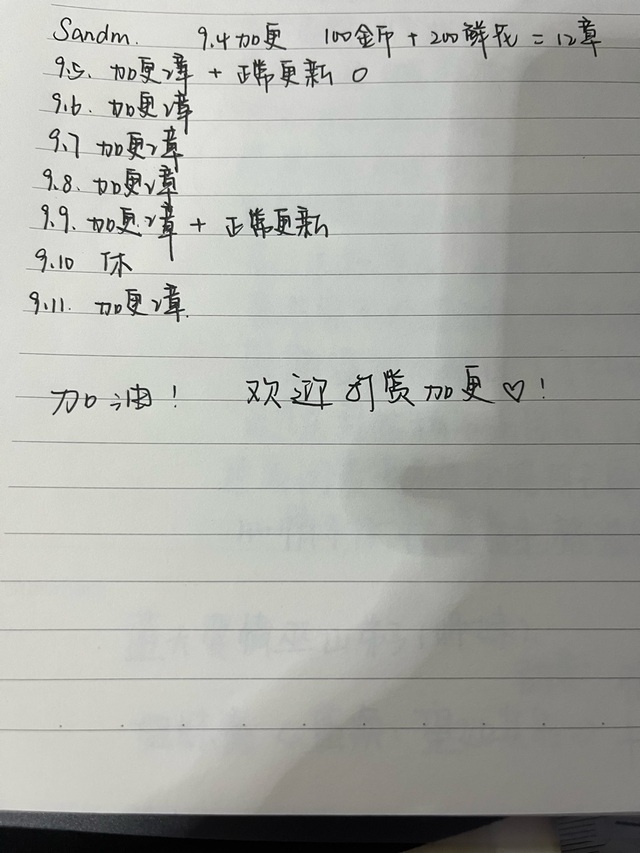 Sandm. 9.4加更 100金币 + 200鲜花 = 12章
9.5. 加更2章 + 正常更新 O
9.6. 加更2章
9.7 加更2章
9.8. 加更2章
9.9. 加更2章 + 正常更新
9.10 休
9.11. 加更2章.
加油! 欢迎打赏加更♡!